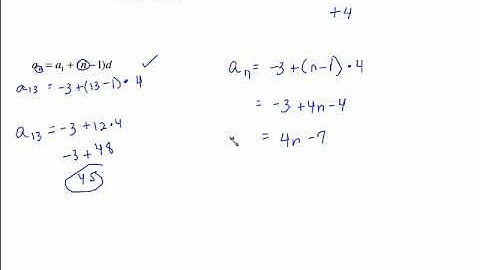 +4
aₙ = a₁ + (n − 1)d ✓
a₁₃ = -3 + (13-1) • 4
a₁₃ = -3 + 12 • 4
-3 + 48
45
aₙ = -3 + (n-1) • 4
= -3 + 4n - 4
= 4n - 7